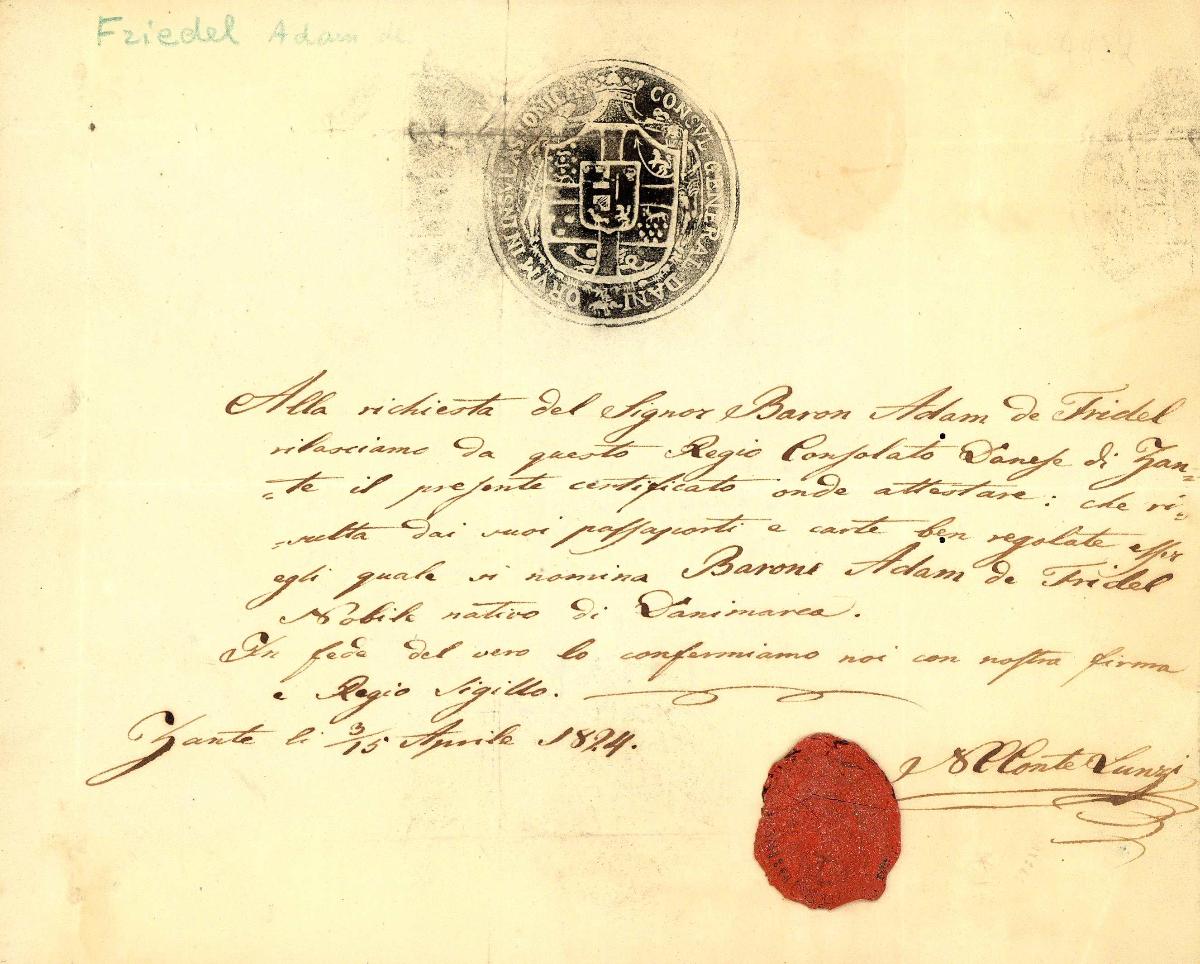 Friedel Adam de
CONSVL GENERAL DANI ORVM IN INSVLAS IONICAS
Alla richiesta del Signor Baron Adam de Fridel
rilasciamo da questo Regio Consolato Danese di Zan=
=te il presente certificato onde attestare: che ri=
=sulta dai suoi passaporti e carte ben regolate esser
egli quale si nomina Barone Adam de Fridel
Nobile nativo di Danimarca.
In fede del vero lo confermiamo noi con nostra firma
e Regio Sigillo.
Zante li 3/15 Aprile 1824.
Conte Lunzi